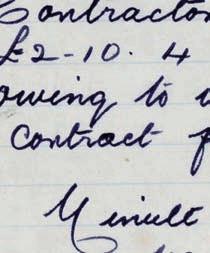 Contractor
£2-10. 4
owing to
Contract